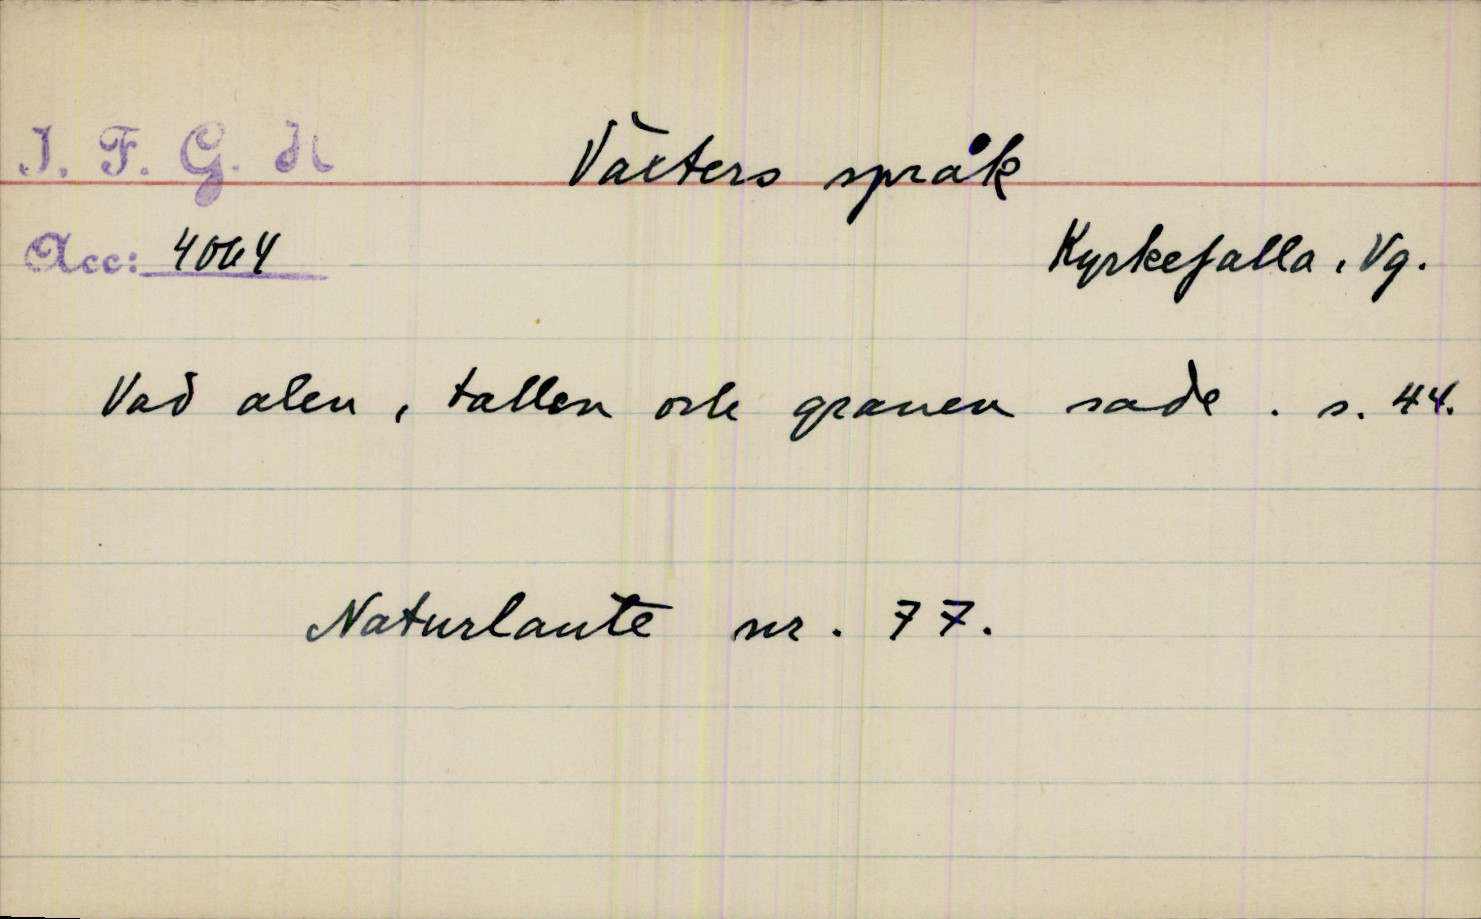 I. F. G. H
Växters språk
Acc: 4064
Kyrkefalla, Vg.
Vad alen, tallen och granen sade. s. 44.
Naturlaute nr. 77.